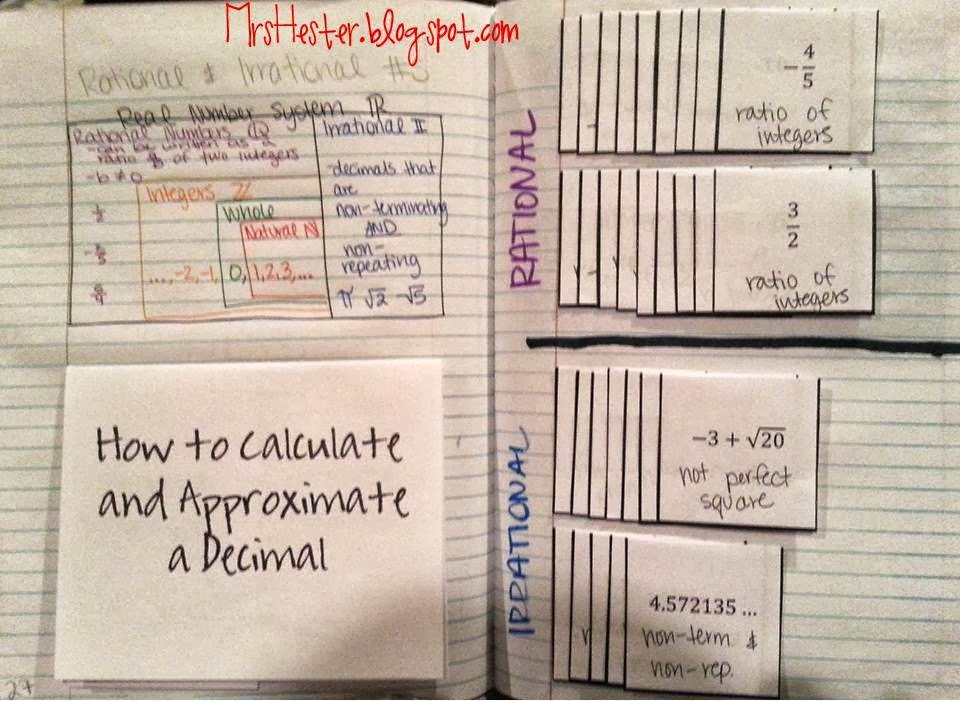 MrsHester.blogspot.com
Rational & Irrational #s
Real Number System ℝ
Rational Numbers ℚ
-can be written as a
ratio of two integers
-b ≠ 0
Integers ℤ
Whole
Natural ℕ
..., -2, -1, 0, 1, 2, 3, ...
Irrational 𝕀
-decimals that
are
non-terminating
AND
non-
repeating
π √2 -√5
How to Calculate
and Approximate
a Decimal
27
RATIONAL
-4/5
ratio of
integers
3/2
ratio of
integers
IRRATIONAL
−3 + √20
not perfect
square
4.572135 ...
non-term &
non-rep.